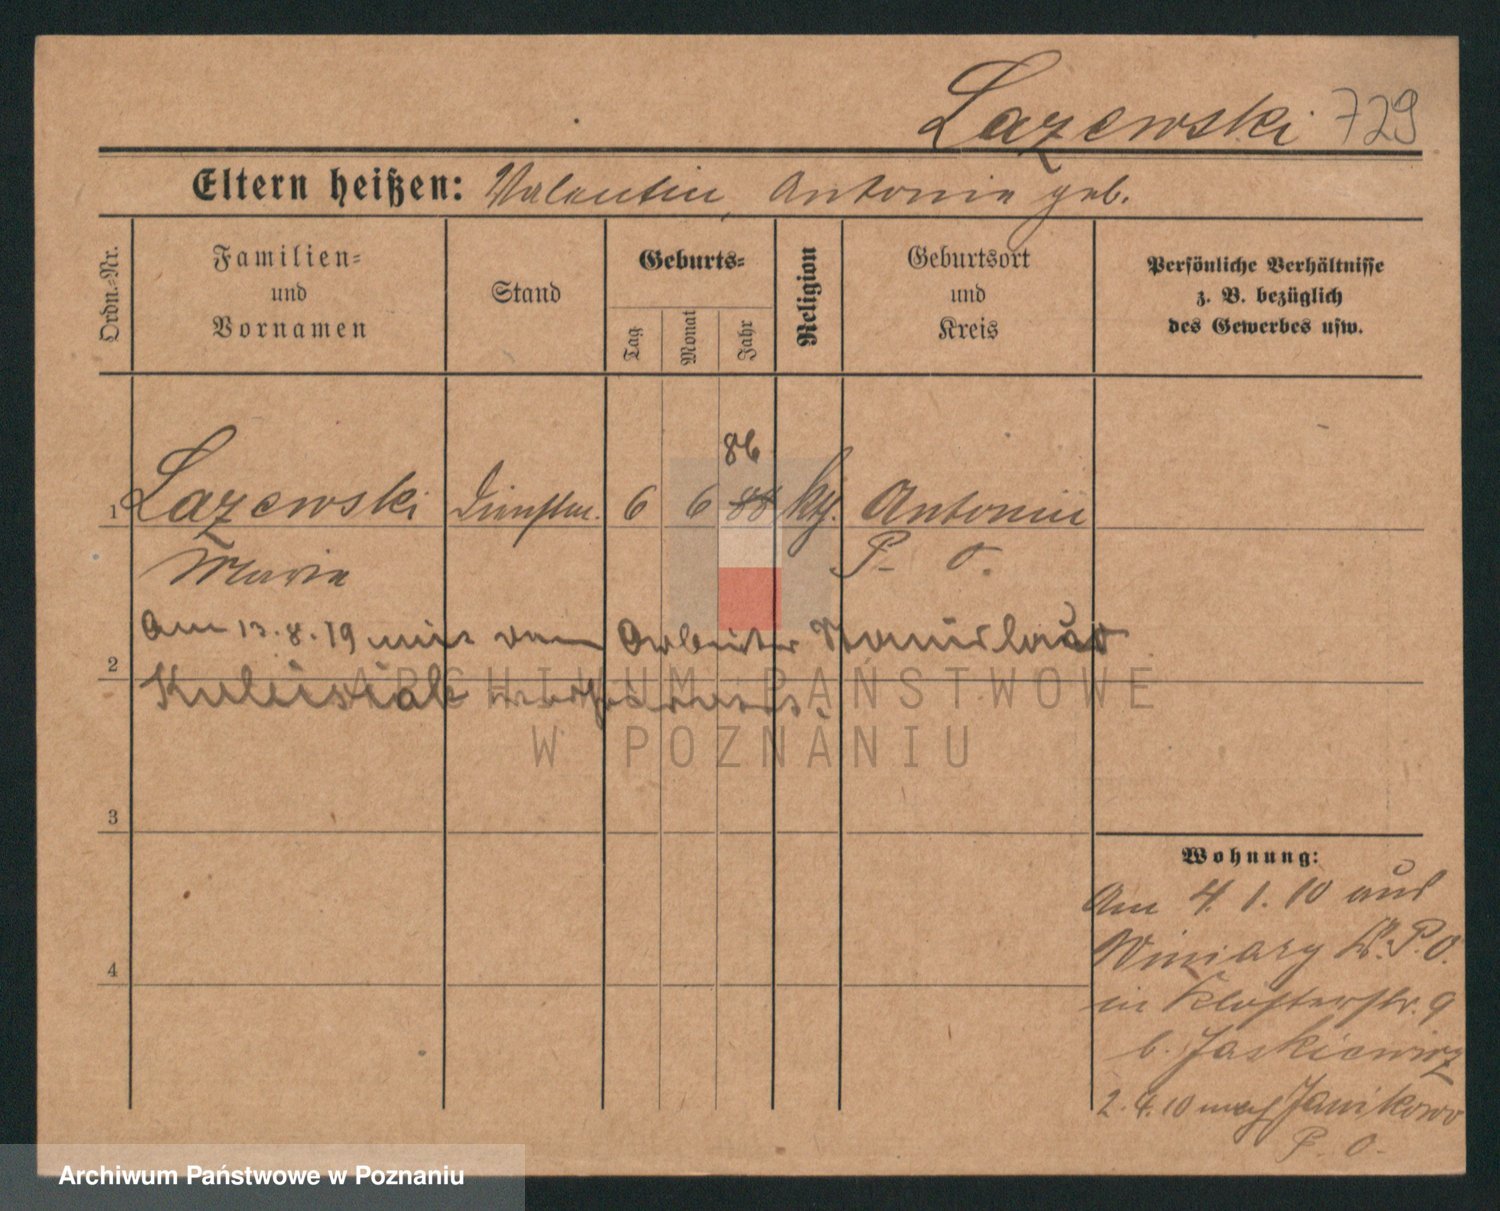 Lazewski 729
Eltern heißen: Valentin, Antonie geb.
Ordn.-Nr.
Familien-
und
Vornamen
Stand
Geburts-
Tag
Monat
Jahr
Religion
Geburtsort
und
Kreis
Persönliche Verhältnisse
z. B. bezüglich
des Gewerbes usw.
86
1 Lazewski Dienstm. 6 6 88 kth. Antonin
Maria P. O.
Am 13.8.19 mit dem Arbeiter Stanislaus
2
verheiratet.
3
4
Wohnung:
Am 4.1.10 aus
Winiary Kr. P. O.
in Klosterstr. 9
b. Jaskiewicz
2.4.10 nach Janikowo
P. O.
ARCHIWUM PAŃSTWOWE
W POZNANIU
Archiwum Państwowe w Poznaniu